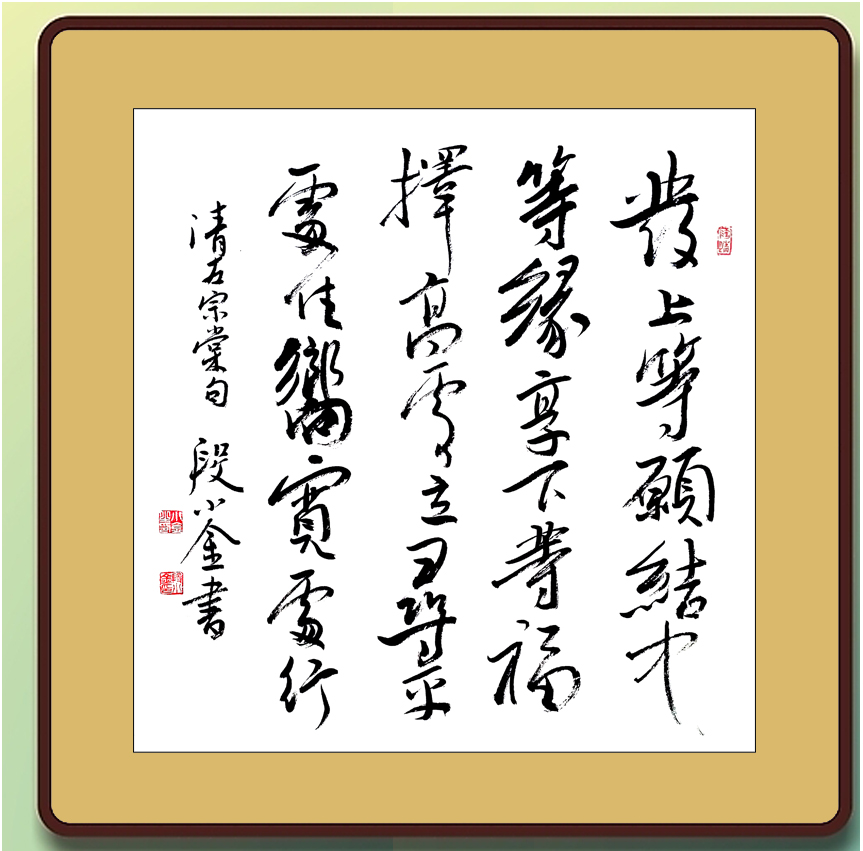 發上等願結中
等緣享下等福
擇高處立尋平
處住嚮寬處行
清左宗棠句 段小金書